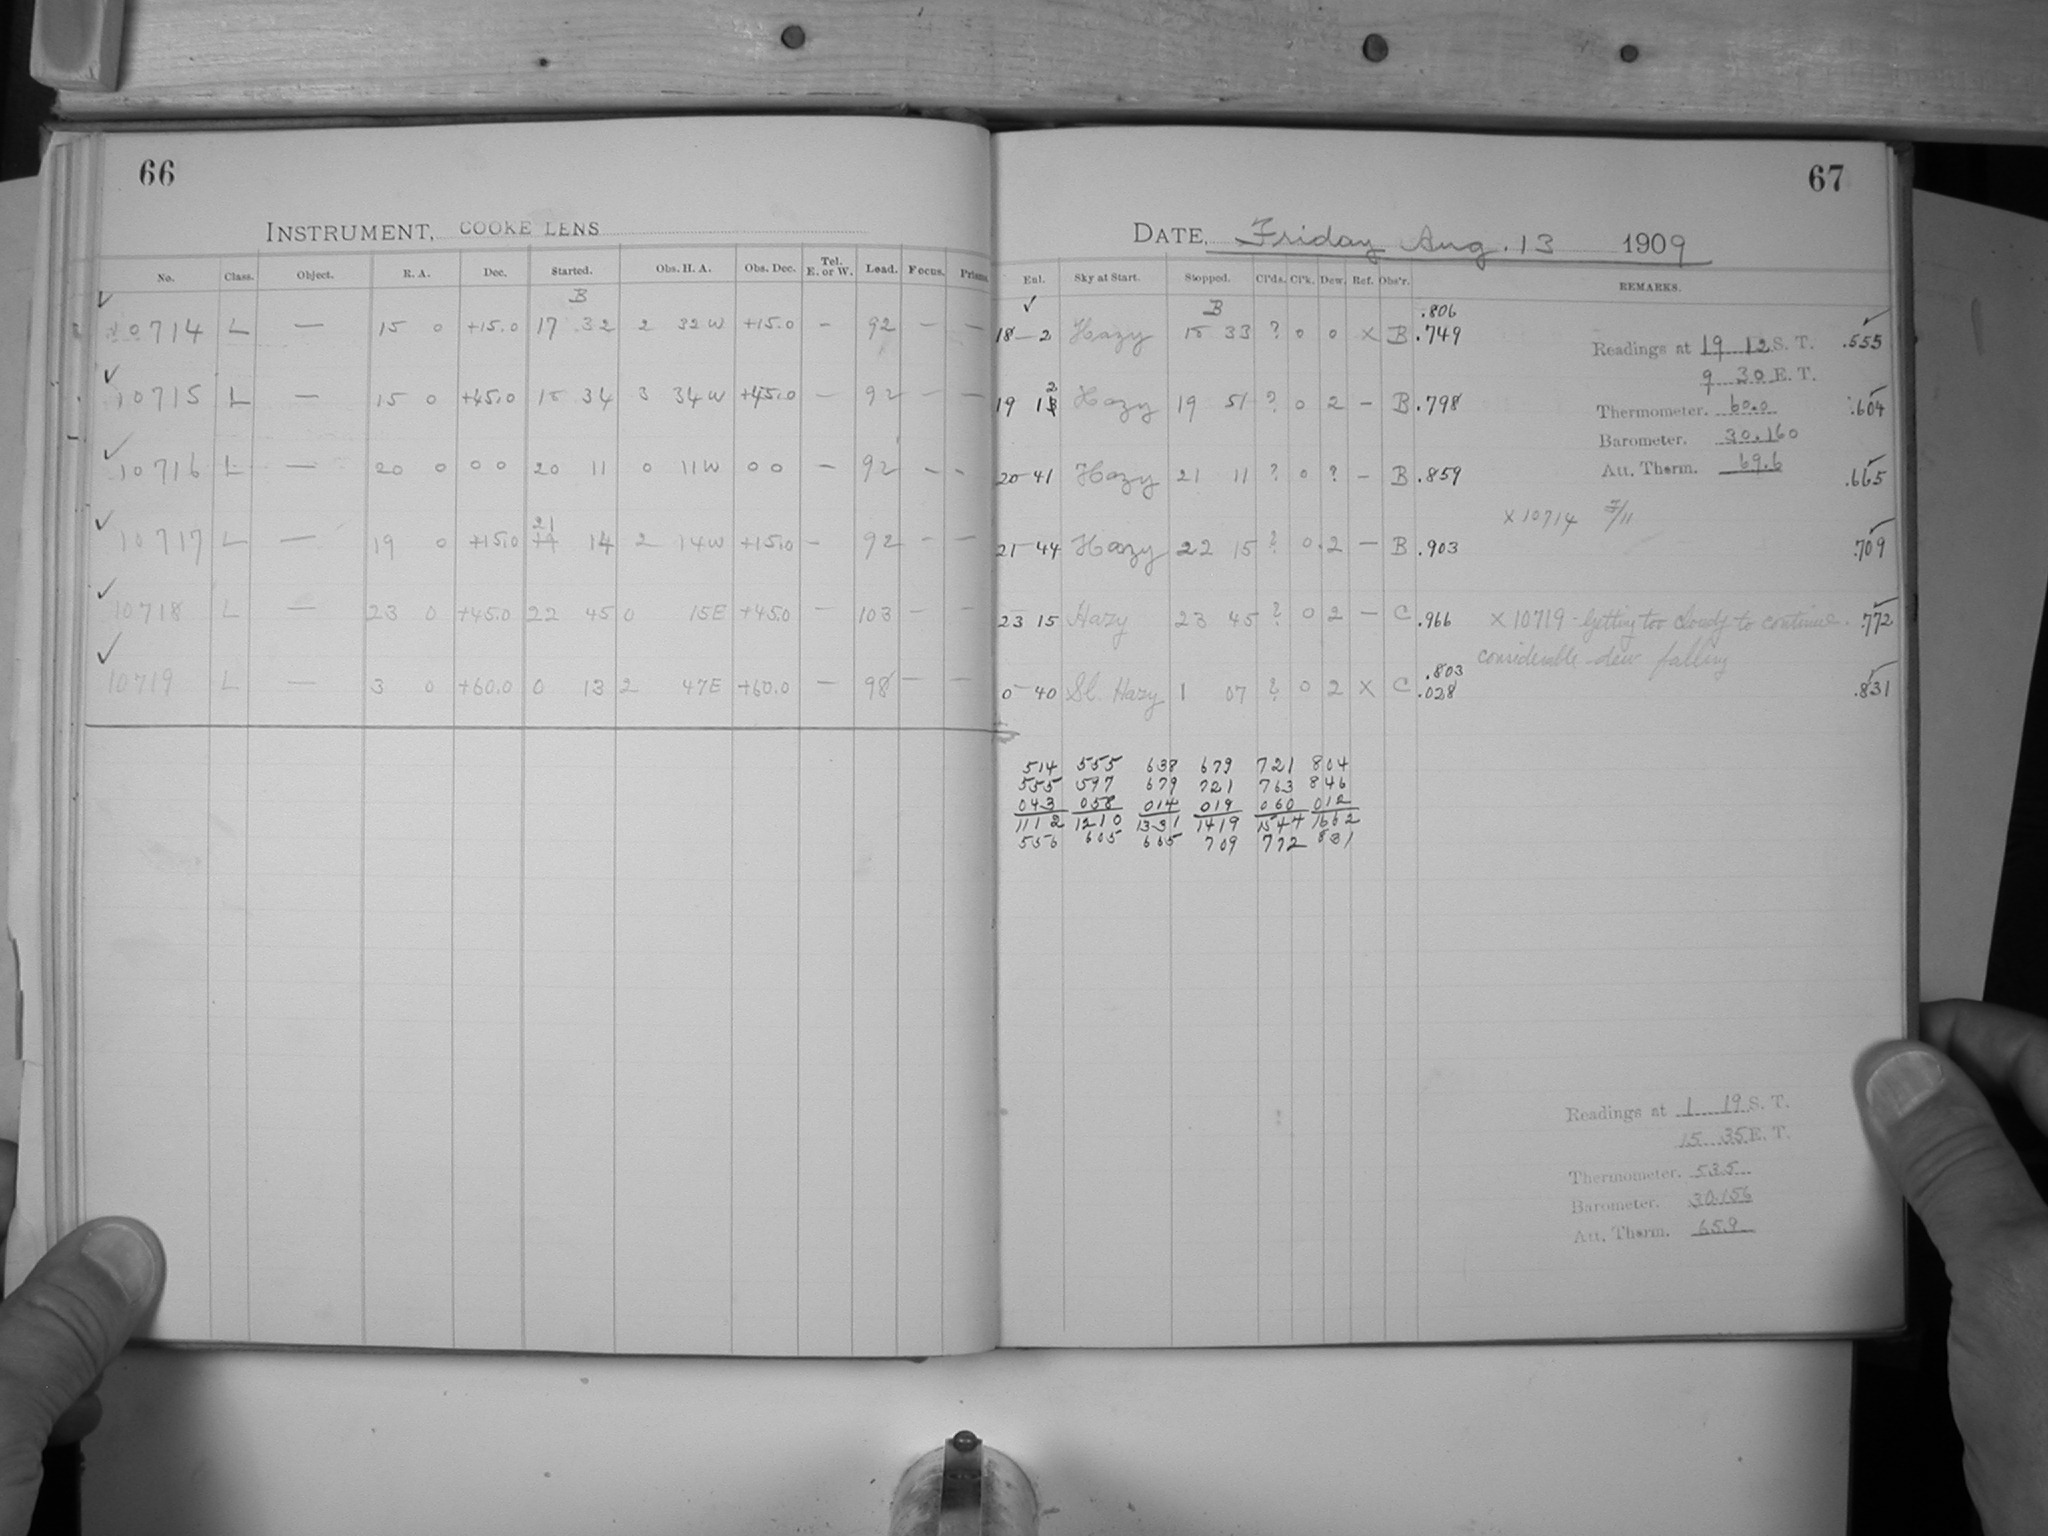 66
INSTRUMENT, COOKE LENS
No. Class. Object. R. A. Dec. Started. Obs. H. A. Obs. Dec. Tel. E. or W. Load. Focus. Prisms.
B
10714 L — 15 0 +15.0 17 32 2 32W +15.0 — 92 — —
10715 L — 15 0 +45.0 18 34 3 34W +45.0 — 92 — —
10716 L — 20 0 0 0 20 11 0 11W 0 0 — 92 — —
21
10717 L — 19 0 +15.0 19 14 2 14W +15.0 — 92 — —
10718 L — 23 0 +45.0 22 45 0 15E +45.0 — 103 — —
10719 L — 3 0 +60.0 0 13 2 47E +60.0 — 98 — —
67
DATE, Friday Aug. 13 1909
Enl. Sky at Start. Stopped. Cl'ds. Cl'k. Dew. Ref. Obs'r. REMARKS.
✓ B .806
18—2 Hazy 18 33 ? 0 0 X B .749
2
19 13 Hazy 19 51 ? 0 2 — B .798
20 41 Hazy 21 11 ? 0 ? — B .859
21 44 Hazy 22 15 ? 0 2 — B .903
23 15 Hazy 23 45 ? 0 2 — C .966
.803
0 40 Sl. Hazy 1 07 ? 0 2 X C .028
Readings at 19 12 S. T. .555
9 30 E. T.
Thermometer. 60.0 .604
Barometer. 30.160
Att. Therm. 69.6 .665
X 10714 F/11
.709
X 10719 - Getting too cloudy to continue. .772
considerable dew falling
.831
514 555 638 679 721 804
555 597 679 721 763 846
043 058 014 019 060 012
1112 1210 1331 1419 1544 1662
556 605 665 709 772 831
Readings at 1 19 S. T.
15 35 E. T.
Thermometer. 53.5
Barometer. 30.156
Att. Therm. 65.9